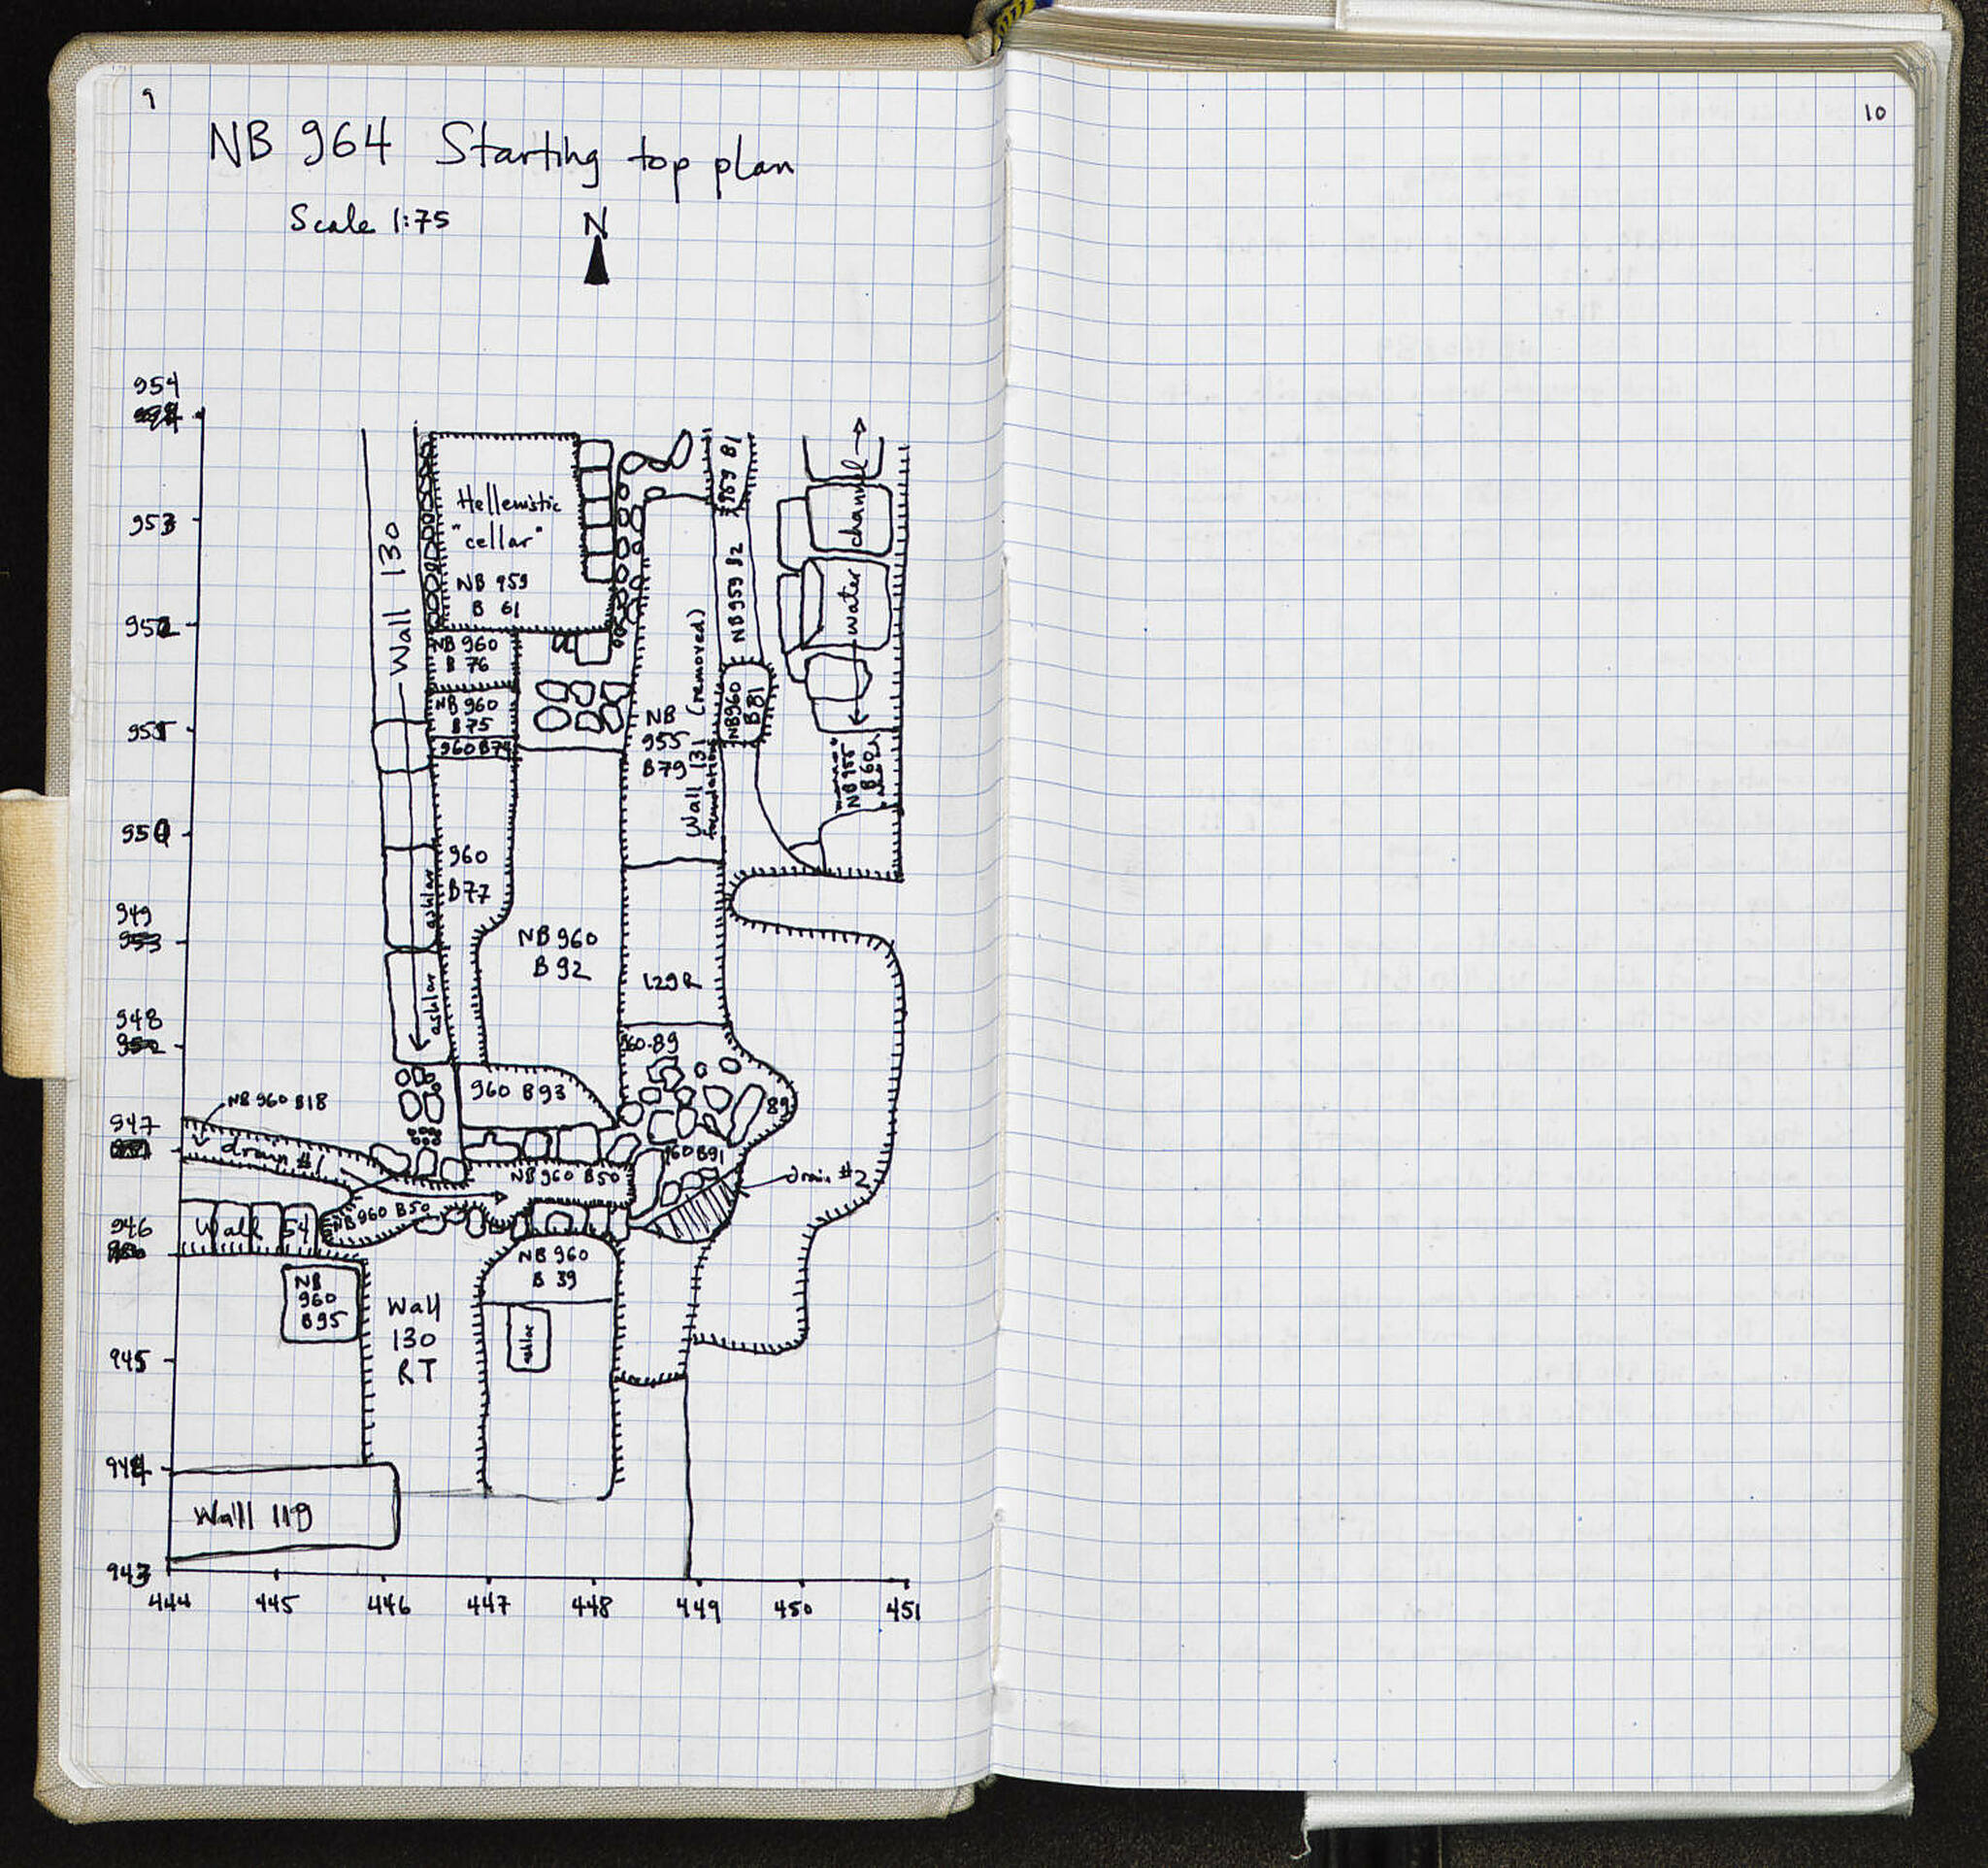 9
NB 964 Starting top plan
Scale 1:75
N
954
953
952
951
950
949
953
948
952
947
946
945
944
943
444
445
446
447
448
449
450
451
Wall 130
Hellenistic
"cellar"
NB 959
B 61
NB 960
B 76
NB 960
B75
960 B74
960
B77
ashlar
ashlar
NB 960
B 92
NB
955
B79
Wall 131 (removed)
foundation
959 B1
NB 959 B2
NB960
B81
water channel
NB 955
B60
129R
960-89
89
960 B93
960 B91
NB 960 B18
drain #1
NB 960 B50
NB 960 B50
drain #2
Wall 54
NB 960
B 39
ashlar
NB
960
B95
Wall
130
RT
Wall 119
10